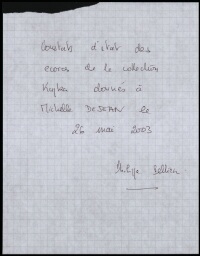 Constats d'état des
ecores de la collection
donnés à
Michelle DEJEAN le
26 mai 2003
Philippe